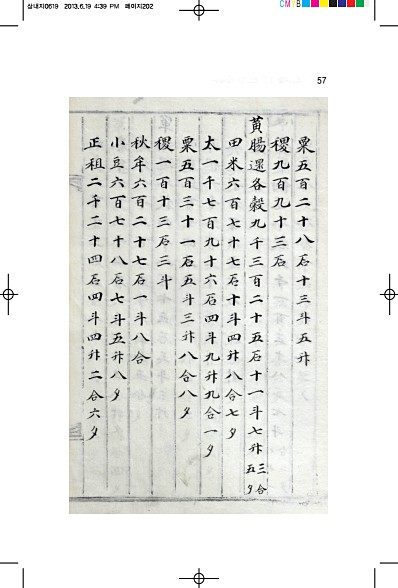 삼내지0619 2013.6.19 4:39 PM 페이지202
CMYB
57
粟五百二十八石十三斗五升
稷九百九十三石
黃腸還各穀九千三百二十五石十一斗七升三合五夕
田米六百七十七石十斗四升八合七夕
太一千七百九十六石四斗九升九合一夕
粟五百三十一石五斗三升八合八夕
稷一百十三石三斗
秋牟六百二十七石一斗八合
小豆六百七十八石七斗五升八夕
正租二千二十四石四斗四升二合六夕